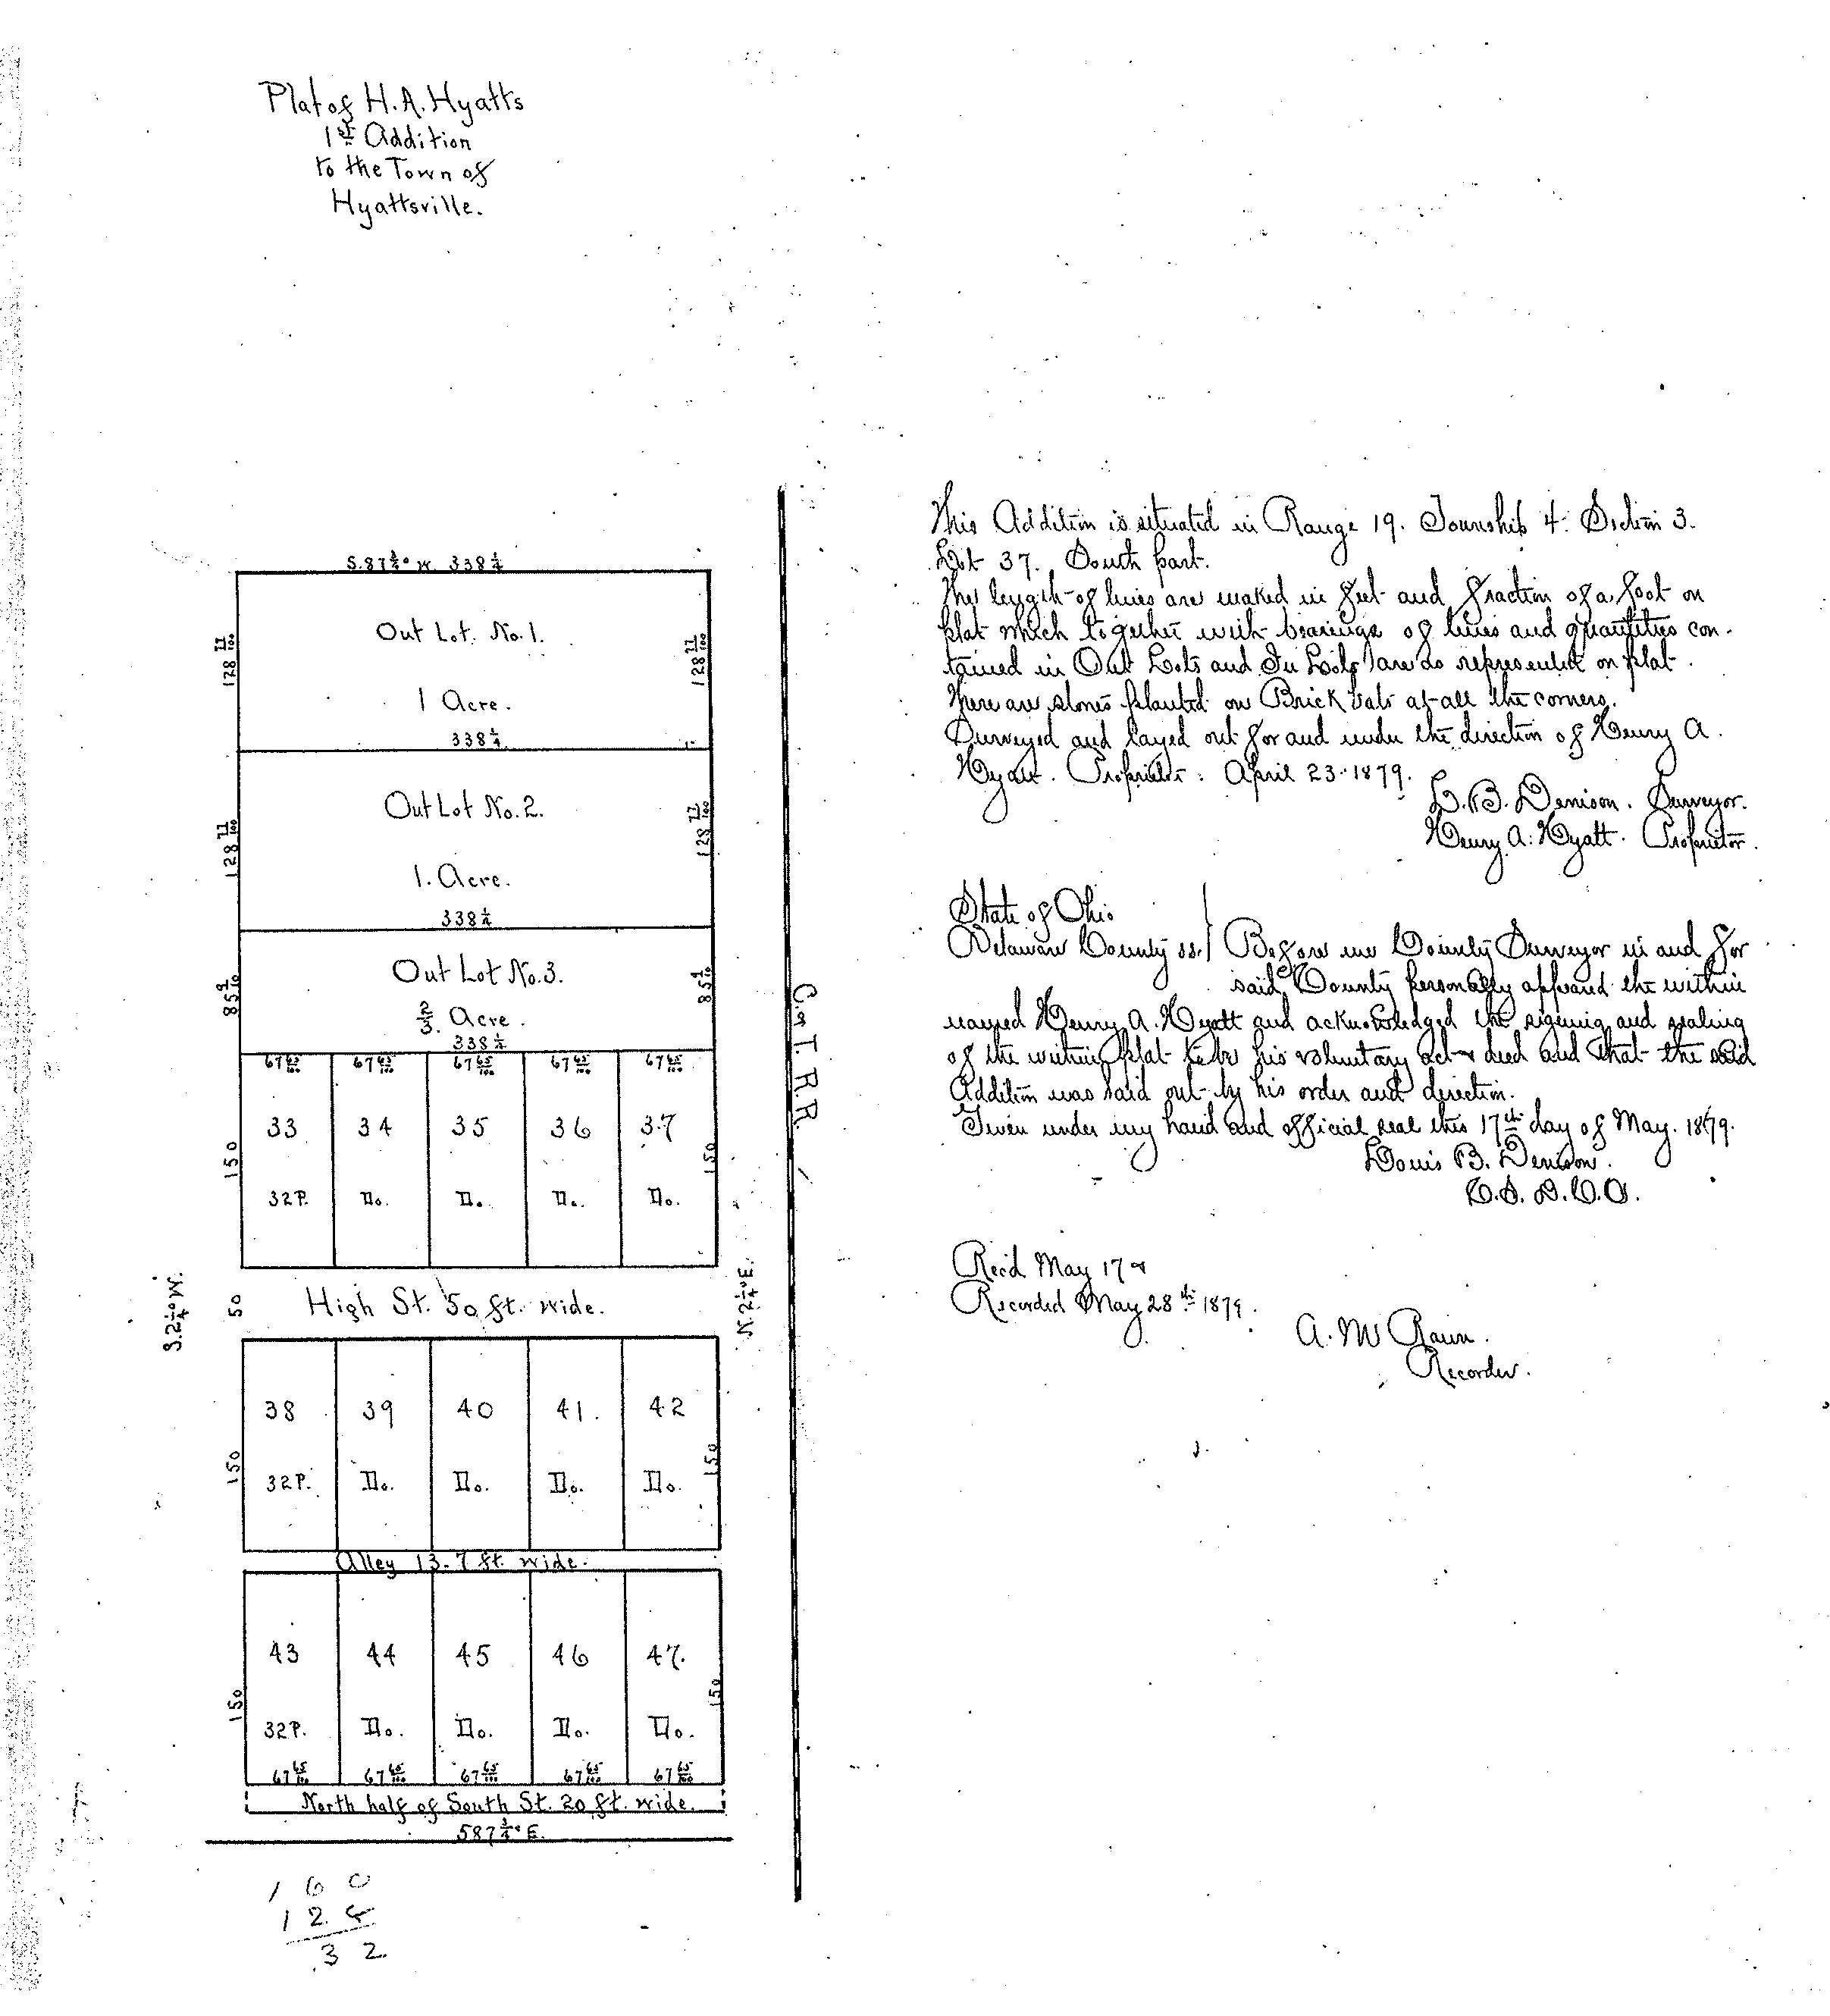 Plat of H. A. Hyatts
1st Addition
to the Town of
Hyattsville.
S. 87 3/4° W. 338 1/4
Out Lot. No. 1.
128 77/100
128 77/100
1 Acre.
338 1/4
Out Lot No. 2.
128 77/100
128 77/100
1. Acre.
338 1/4
Out Lot No. 3.
85
85
2/3. Acre.
338 1/4
67 65/100 67 65/100 67 65/100 67 65/100 67 65/100
33 34 35 36 37
150
150
32 P. Do. Do. Do. Do.
S. 2 1/4° W.
50
High St. 50 ft. wide.
N. 2 1/4° E.
38 39 40 41. 42
150
150
32 P. Do. Do. Do. Do.
Alley 13.7 ft. wide.
43 44 45 46 47.
150
150
32 P. Do. Do. Do. Do.
67 65/100 67 65/100 67 65/100 67 65/100 67 65/100
North half of South St. 20 ft. wide.
S 87 3/4° E.
160
124
32
C. & T. R. R.
This Addition is situated in Range 19. Township 4. Section 3.
Lot 37. South part.
The length of lines are maked in feet and fraction of a foot on
plat which together with bearings of lines and quantities con-
tained in Out Lots and In Lots are so represented on plat.
There are stones planted on Brick bats at all the corners.
Surveyed and layed out for and under the direction of Henry A.
Hyatt. Proprietor. April 23. 1879.
L. B. Denison. Surveyor.
Henry A. Hyatt. Proprietor.
State of Ohio
Delaware County ss. Before me County Surveyor in and for
said County personally appeared the within
named Henry A. Hyatt and acknowledged the signing and sealing
of the within plat to be his voluntary act & deed and that the said
Addition was laid out by his order and direction.
Given under my hand and official seal this 17th day of May. 1879.
Louis B. Denison.
C. S. D. C. O.
Rec'd May 17 &
Recorded May 28th 1879.
A. M
Recorder.